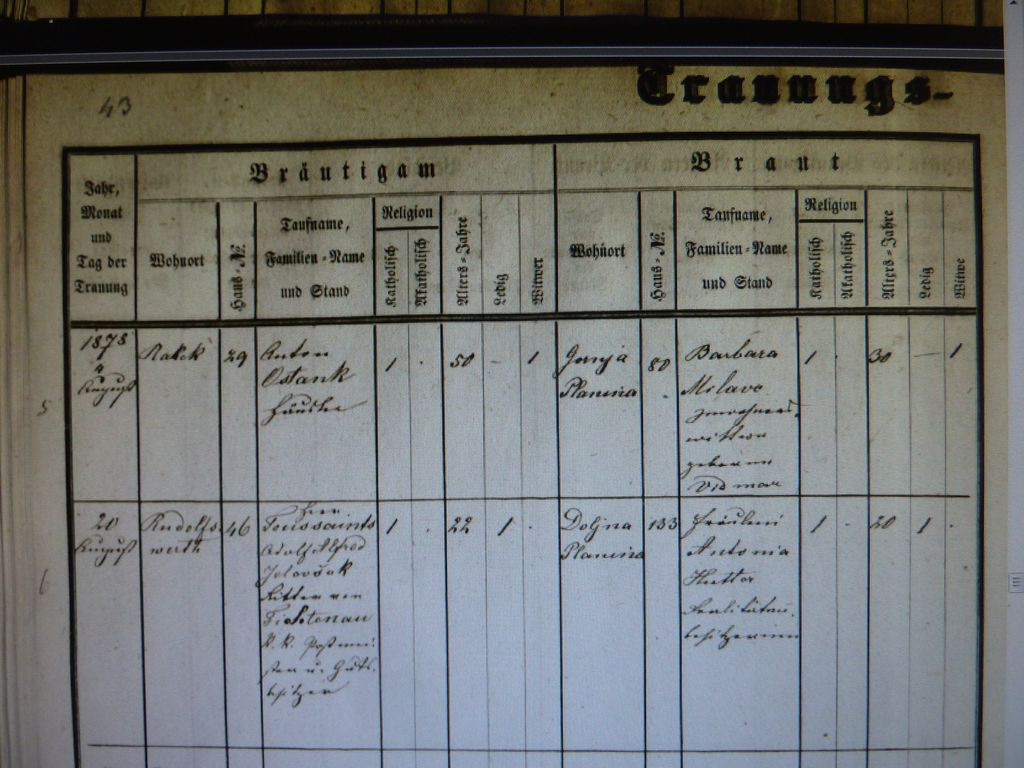 43
Trauungs-
Jahr,
Monat
und
Tag der
Trauung
Bräutigam
Wohnort
Haus-№.
Taufname,
Familien-Name
und Stand
Religion
Katholisch
Akatholisch
Alters-Jahre
Ledig
Witwer
Braut
Wohnort
Haus-№.
Taufname,
Familien-Name
und Stand
Religion
Katholisch
Akatholisch
Alters-Jahre
Ledig
Witwe
5
1878
4
August
Rakek
29
Anton
Ostank
1 . 50 - 1
Planina
80
Barbara
Milavc
wittwe
geborene
Vidmar
1 . 30 — 1
6
20
August
Rudolfs
werth
46
Herr
Toussaints
Adolf Alfred
Jelovšek
Ritter von
Fichtenau
K. K. Postmei-
ster u. Guts-
besitzer
1 . 22 1 .
Doljna
Planina
133
Fräulein
Antonia
Hutter
Realitäten-
besitzerinn
1 . 20 1 .